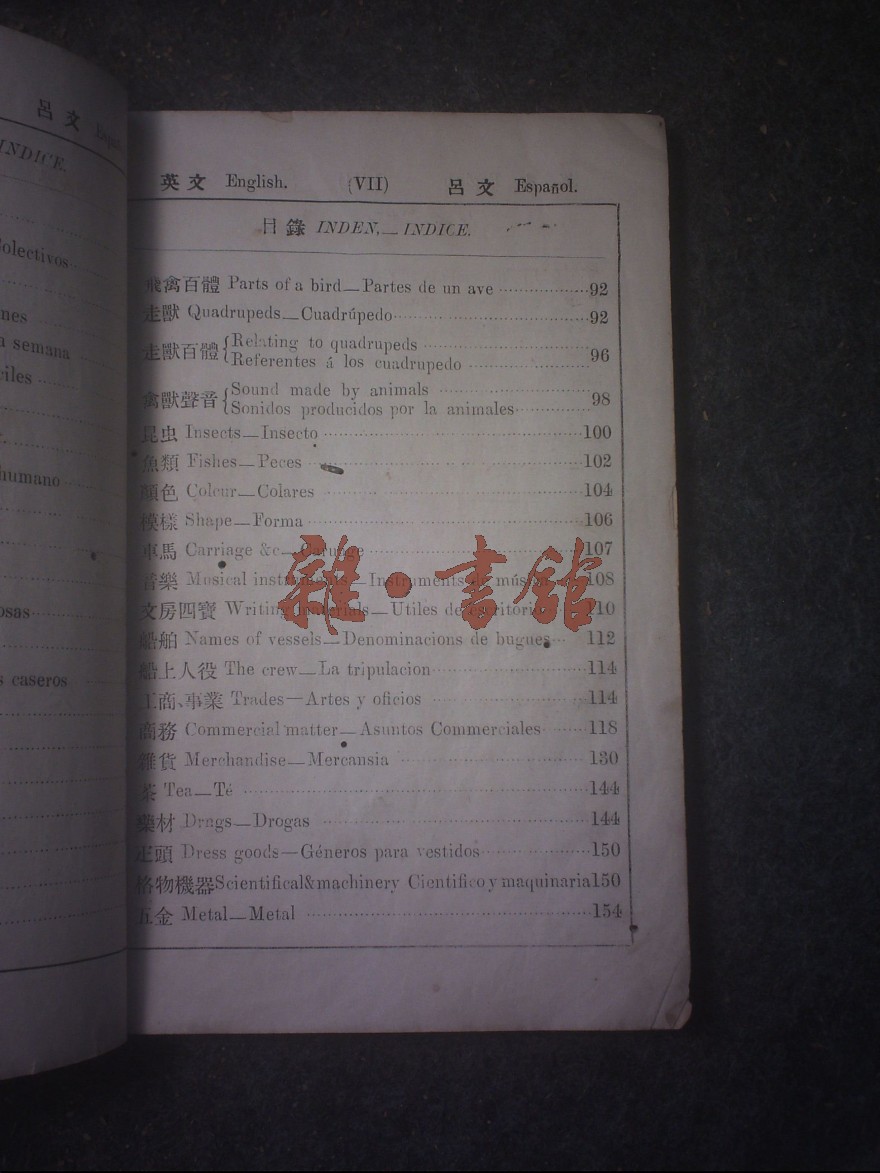 呂文
INDICE.
Colectivos
semana
humano
caseros
英文 English. (VII) 呂文 Español.
目錄 INDEN,— INDICE.
飛禽百體 Parts of a bird—Partes de un ave 92
走獸 Quadrupeds—Cuadrúpedo 92
走獸百體 { Relating to quadrupeds
Referentes á los cuadrupedo 96
禽獸聲音 { Sound made by animals
Sonidos producidos por la animales 98
昆虫 Insects—Insecto 100
魚類 Fishes—Peces 102
顏色 Colour—Colares 104
模樣 Shape—Forma 106
車馬 Carriage &c— 107
音樂 Musical instruments—Instruments de música 108
文房四寶 Writing materials—Utiles de escritorio 110
船舶 Names of vessels—Denominacions de bugues 112
船上人役 The crew—La tripulacion 114
工商、事業 Trades—Artes y oficios 114
商務 Commercial matter—Asuntos Commerciales 118
雜貨 Merchandise—Mercansia 130
茶 Tea—Té 144
藥材 Drags—Drogas 144
疋頭 Dress goods—Géneros para vestidos 150
格物機器 Scientifical&machinery Cientifico y maquinaria 150
五金 Metal—Metal 154
雜·書館